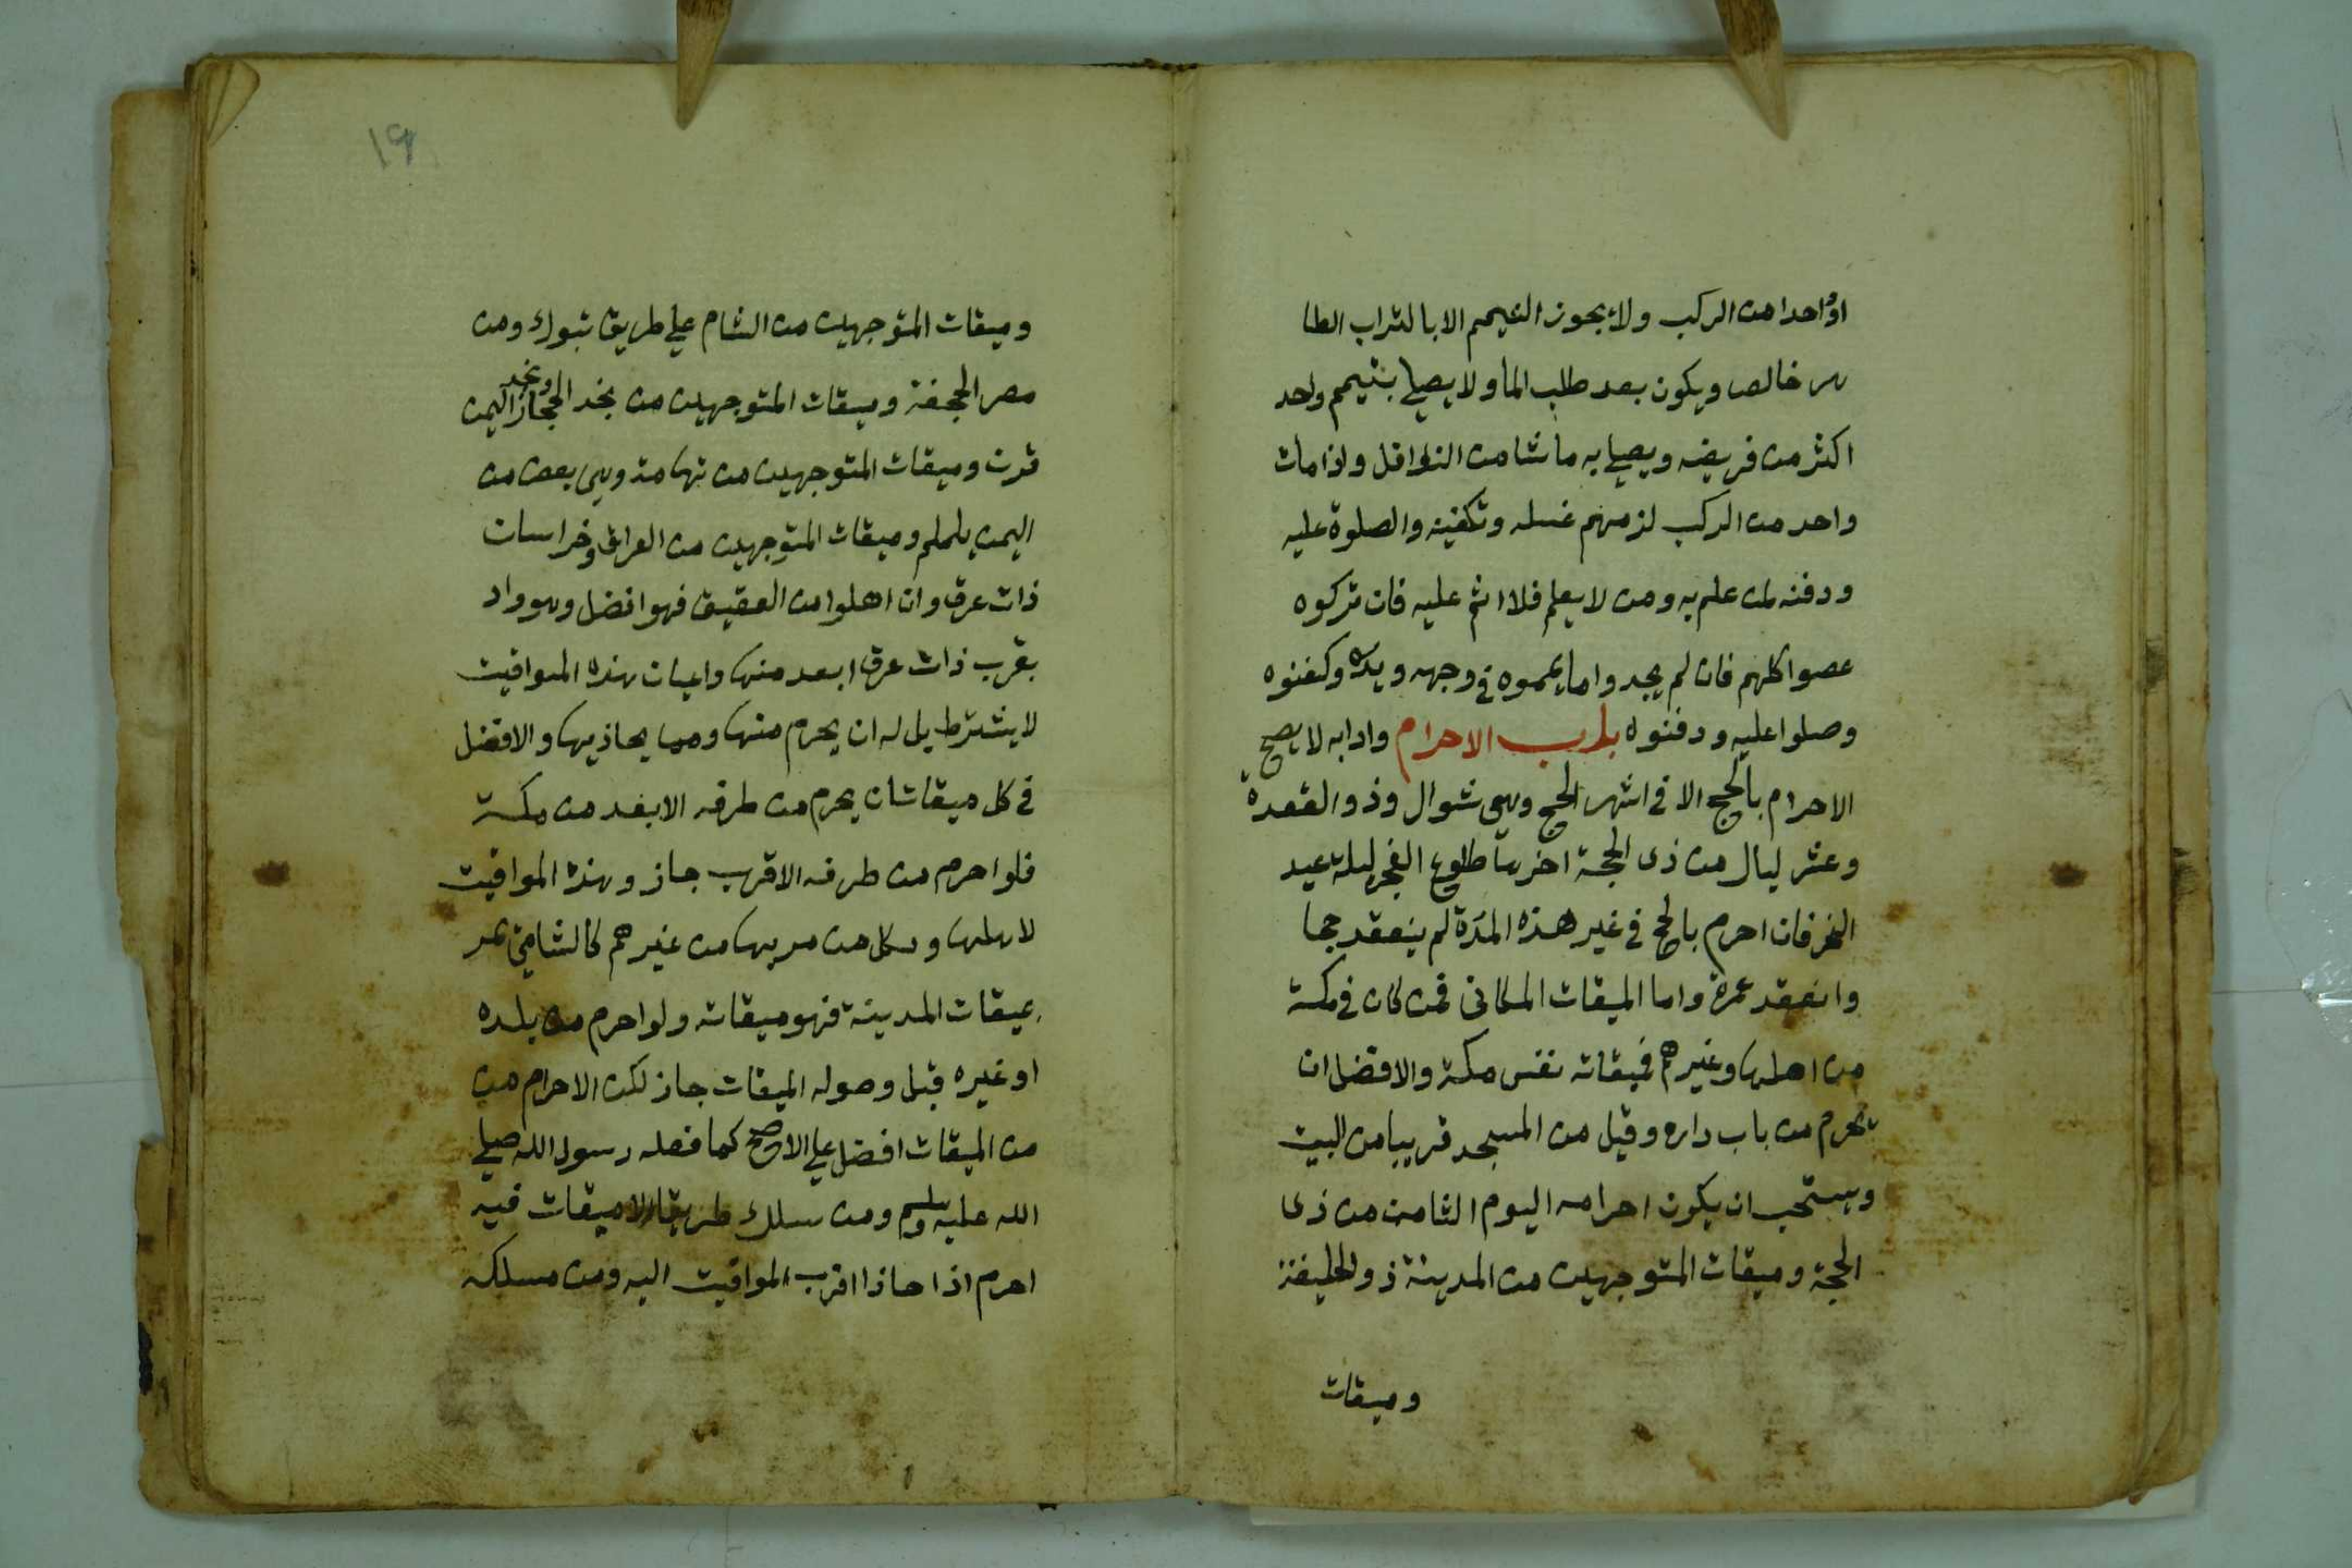 او واحدا من الركب ولا يجوز التيمم الا بالتراب الطا
هر خالص ويكون بعد طلب الما ولا يصلي بتيمم واحد
اكثر من فريضه ويصلي به ما شا من النوافل واذا مات
واحد من الركب لزمهم غسله وتكفينه والصلوة عليه
ودفنه لمن علم به ومن لا يعلم فلا اثم عليه فان تركوه
عصوا كلهم فان لم يجدوا ما يمموه في وجهه ويده وكفنوه
وصلوا عليه ودفنوه باب الاحرام وادابه لا يصح
الاحرام بالحج الا في اشهر الحج وهي شوال وذو القعدة
وعشر ليال من ذى الحجة اخرها طلوع الفجر ليلة عيد
النحر فان احرم بالحج في غير هذه المدة لم ينعقد حجا
وانعقد عمرة واما الميقات المكانى فمن كان في مكة
من اهلها وغيرهم فميقاته نفس مكة والافضل ان
يحرم من باب داره وقيل من المسجد قريبا من البيت
ويستحب ان يكون احرامه اليوم الثامن من ذى
الحجة وميقات المتوجهين من المدينة ذو الحليفة
وميقات
١٩
وميقات المتوجهين من الشام علي طريق تبوك ومن
مصر الجحفة وميقات المتوجهين من نجد الحجاز ونجد اليمن
قرن وميقات المتوجهين من تهامة وهي بعض من
اليمن يلملم وميقات المتوجهين من العراق وخراسان
ذات عرق وان اهلوا من العقيق فهو افضل وهو واد
بقرب ذات عرق ابعد منها واعيان هذه المواقيت
لا يشترط بل له ان يحرم منها ومما يحاذيها والافضل
في كل ميقات ان يحرم من طرفه الابعد من مكة
فلو احرم من طرفه الاقرب جاز وهذه المواقيت
لاهلها ولكل من مر بها من غيرهم كالشامي يمر
بميقات المدينة فهو ميقاته ولو احرم من بلده
او غيره قبل وصوله الميقات جاز لكن الاحرام من
من الميقات افضل علي الاصح كما فعله رسول الله صلي
الله عليه وسلم ومن سلك طريقا لا ميقات فيه
احرم اذا حاذا اقرب المواقيت اليه ومن مسلكه